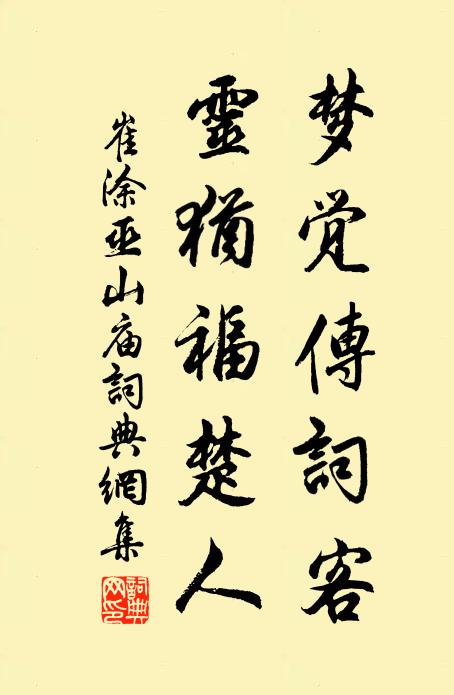 梦觉傳詞客
靈猶福楚人
崔涂巫山庙詞典網集
詞典网印